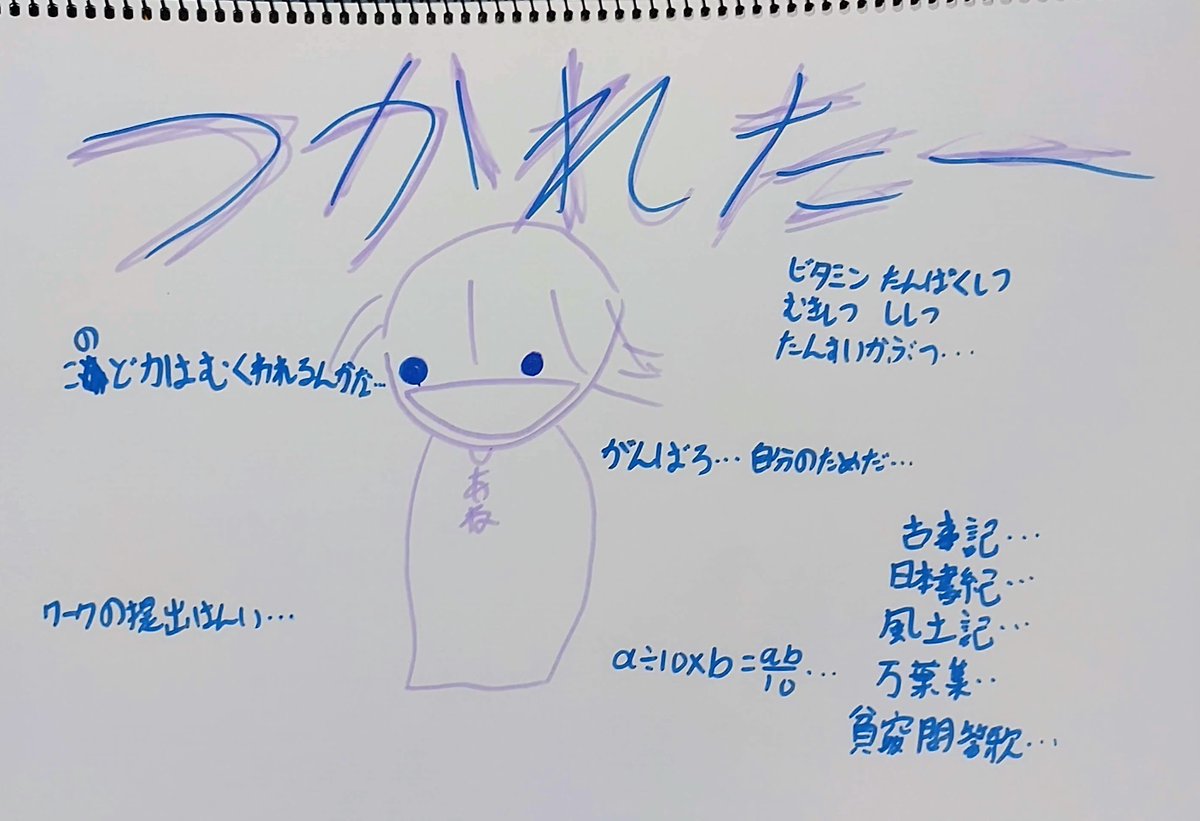 つかれたー
ビタミン たんぱくしつ
むきしつ ししつ
たんすいかぶつ…
この
ど力はむくわれるんかだ…
がんばろ…自分のためだ…
あね
古事記…
日本書紀…
風土記…
万葉集‥
貧窮問答歌…
ワークの提出はんい…
a÷10×b=ab/10…